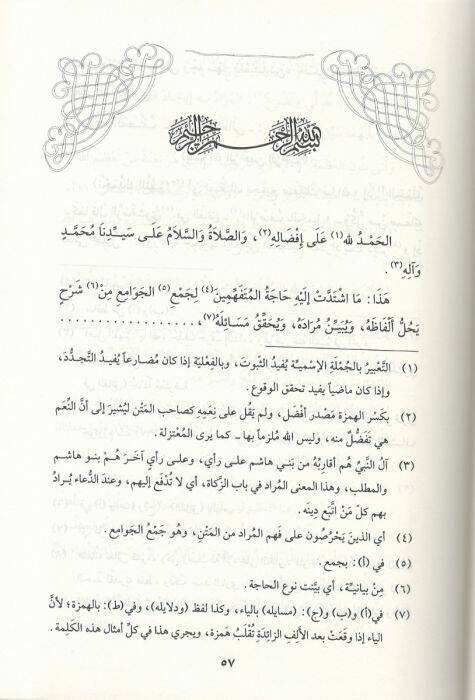 بسم الله الرحمن الرحيم
الحَمْدُ للهِ(١) عَلَى إِفْضَالِهِ(٢)، وَالصَّلَاةُ وَالسَّلَامُ عَلَى سَيِّدِنَا مُحَمَّدٍ
وَآلِهِ(٣).
هَذَا: مَا اشْتَدَّتْ إِلَيْهِ حَاجَةُ المُتَفَهِّمِينَ(٤) لِجَمْعِ(٥) الجَوَامِعِ مِنْ(٦) شَرْحٍ
يَحُلُّ أَلْفَاظَهُ، وَيُبَيِّنُ مُرَادَهُ، وَيُحَقِّقُ مَسَائِلَهُ(٧)، . . . . . . . . . . . . . .
(١) التَّعْبيرُ بالجُمْلَةِ الإسْمِيَّة يُفيدُ الثبوتَ، وبالفِعْليَّة إذا كان مُضارعاً يُفيد التَّجدُّدَ،
وإذا كان ماضياً يفيد تحقق الوقوع.
(٢) بكَسْر الهمزة مَصْدر أفضل، ولم يَقُل على نِعَمِهِ كصاحب المَتْن ليُشيرَ إلى أنَّ النِّعَم
هي تَفَضُّلٌ منه، وليس الله مُلزماً بها - كما يرى المُعْتزلة.
(٣) آلُ النَّبيِّ هُم أقاربُهُ من بَني هاشم على رأي، وعلى رأي آخرَ هُمْ بنو هاشم
والمطلب، وهذا المعنى المُراد في باب الزَّكاة، أي لا تدْفَع إليهم، وعندَ الدُّعاء يُرادُ
بهم كلّ مَنْ اتَّبَع دِينَه.
(٤) أي الذينَ يَحْرِصُون على فَهم المُراد من المَتْنِ، وهُو جَمْعُ الجَوامع.
(٥) في (أ): بجمع.
(٦) مِنْ بيانيَّة، أي بيَّنت نوع الحاجة.
(٧) في(أ) و(ب) و(ج): (مسايله) بالياء، وكذا لفظ (ودلايله)، وفي(ط): بالهمزة؛ لأنَّ
الياء إذا وقَعَتْ بعد الألِفِ الزَّائِدةِ تُقْلَبُ هَمزة، ويجري هذا في كلّ أمثال هذه الكَلِمة.
٥٧